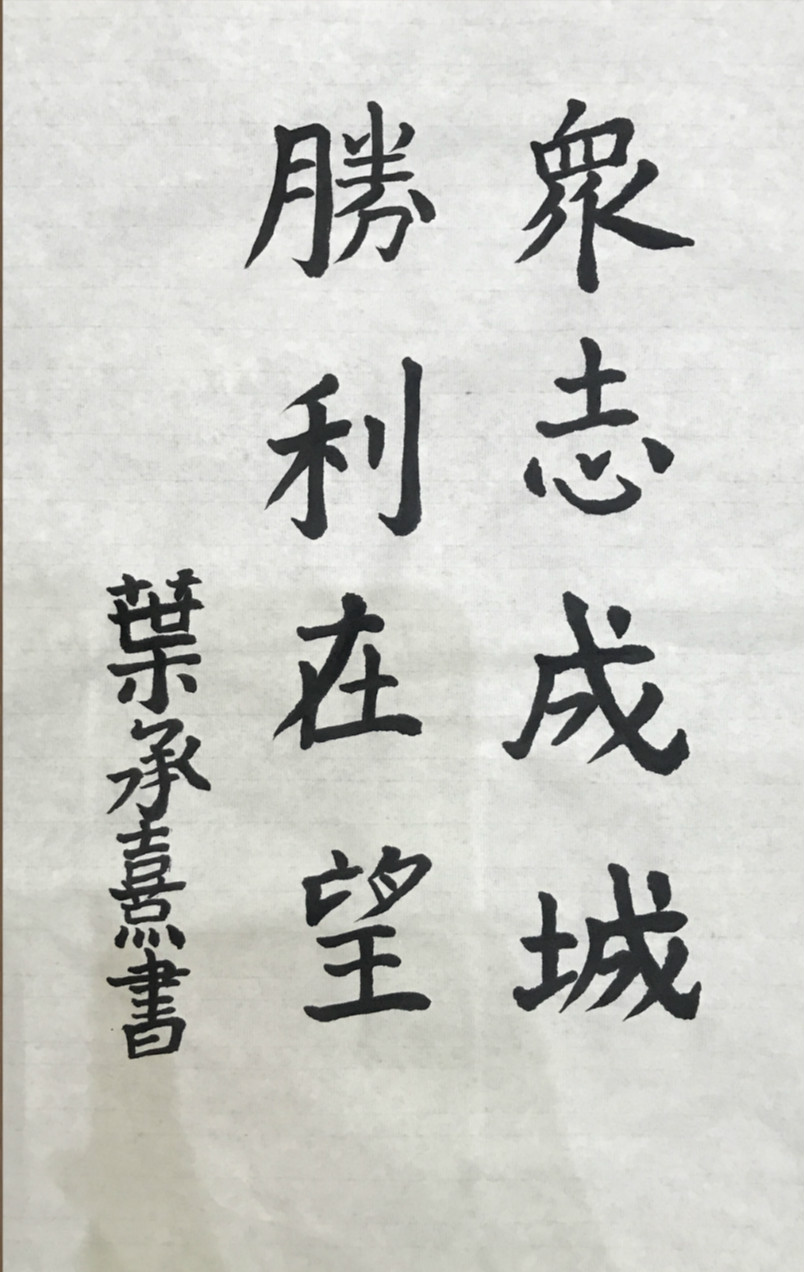 眾志成城
勝利在望
葉承熹書